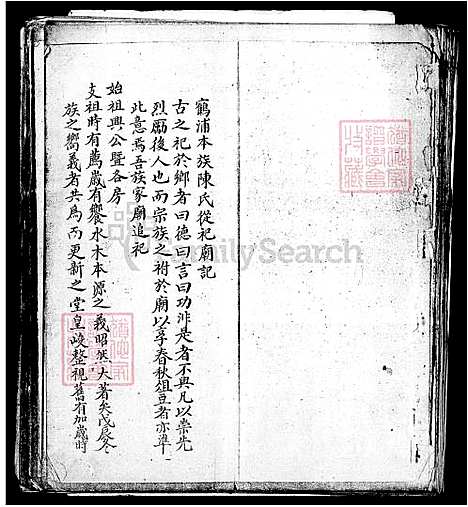 鶴浦本族陳氏從祀廟記
古之祀於鄉者曰德曰言曰功非是者不與凡以崇先
烈勵後人也而宗族之祔於廟以享春秋俎豆者亦準
此意焉吾族家廟追祀
始祖興公暨各房
支祖時有薦歲有饗水木本源之義昭然大著矣戊辰冬
族之嚮義者共為而更新之堂皇峻整視舊有加歲時
FamilySearch